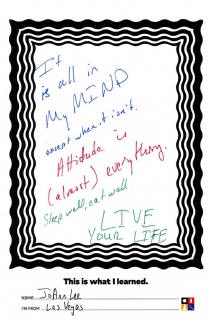 It
is all in
My MIND
except when it isn't.
Attitude is
(almost) everything.
Sleep well, eat well.
LIVE
YOUR LIFE
This is what I learned.
NAME: JoAnn Lee
I'M FROM: Las Vegas